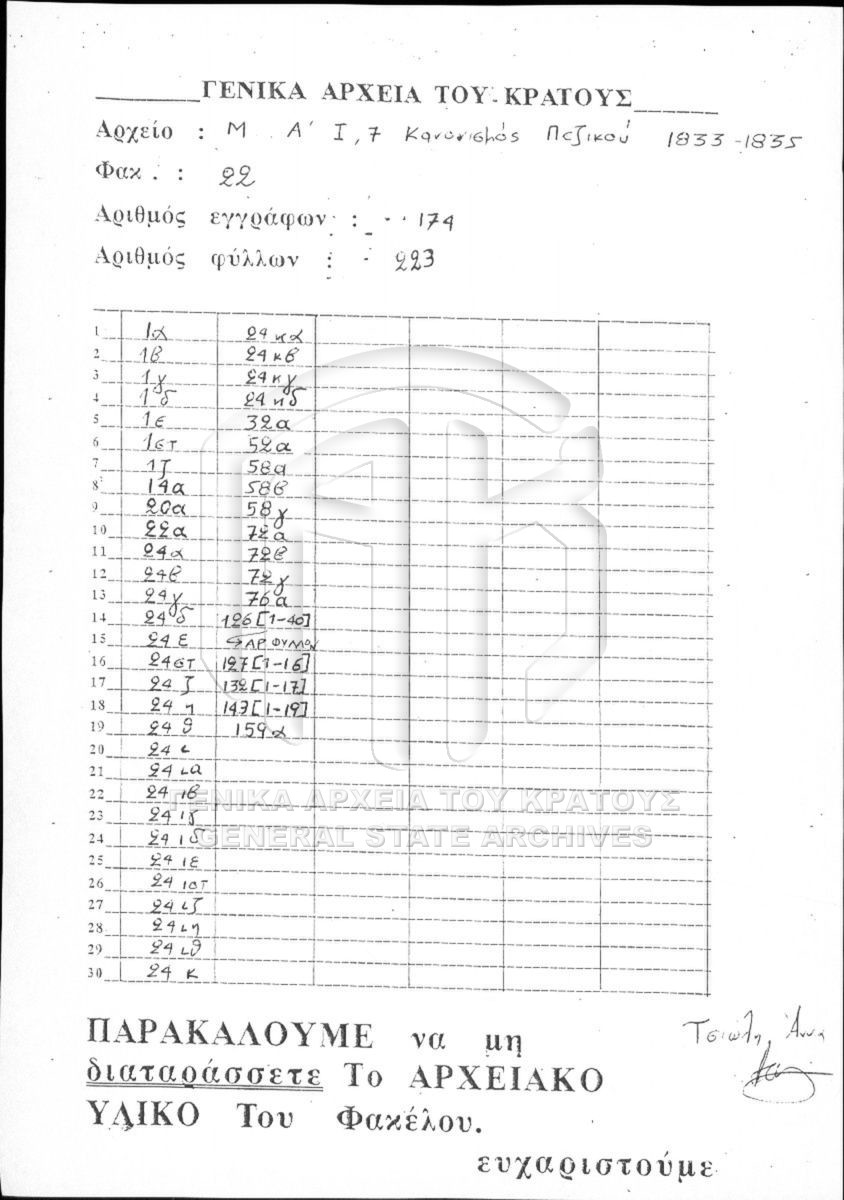 ΓΕΝΙΚΑ ΑΡΧΕΙΑ ΤΟΥ ΚΡΑΤΟΥΣ
Αρχείο : Μ Α' Ι, 7 Κανονισμός Πεζικού 1833-1835
Φακ. : 22
Αριθμός εγγράφων : 174
Αριθμός φύλλων : 223
1 1α 24 κα
2 1β 24 κβ
3 1γ 24 κγ
4 1δ 24 κδ
5 1ε 32α
6 1ετ 52α
7 1ζ 58α
8 14α 58β
9 20α 58γ
10 22α 72α
11 24α 72β
12 24β 72γ
13 24γ 76α
14 24δ 126[1-40]
15 24 ε ΑΡ ΦΥΛΛΟΝ
16 24ετ 127[1-16]
17 24 ζ 132[1-17]
18 24 η 147[1-19]
19 24 θ 159α
20 24 ι
21 24 ια
22 24 ιβ
23 24 ιγ
24 24 ιδ
25 24 ιε
26 24 ιετ
27 24 ιζ
28 24 ιη
29 24 ιθ
30 24 κ
ΓΕΝΙΚΑ ΑΡΧΕΙΑ ΤΟΥ ΚΡΑΤΟΥΣ
GENERAL STATE ARCHIVES
ΠΑΡΑΚΑΛΟΥΜΕ να μη
διαταράσσετε Το ΑΡΧΕΙΑΚΟ
ΥΛΙΚΟ Του Φακέλου.
ευχαριστούμε
Τσιώλη Άννα